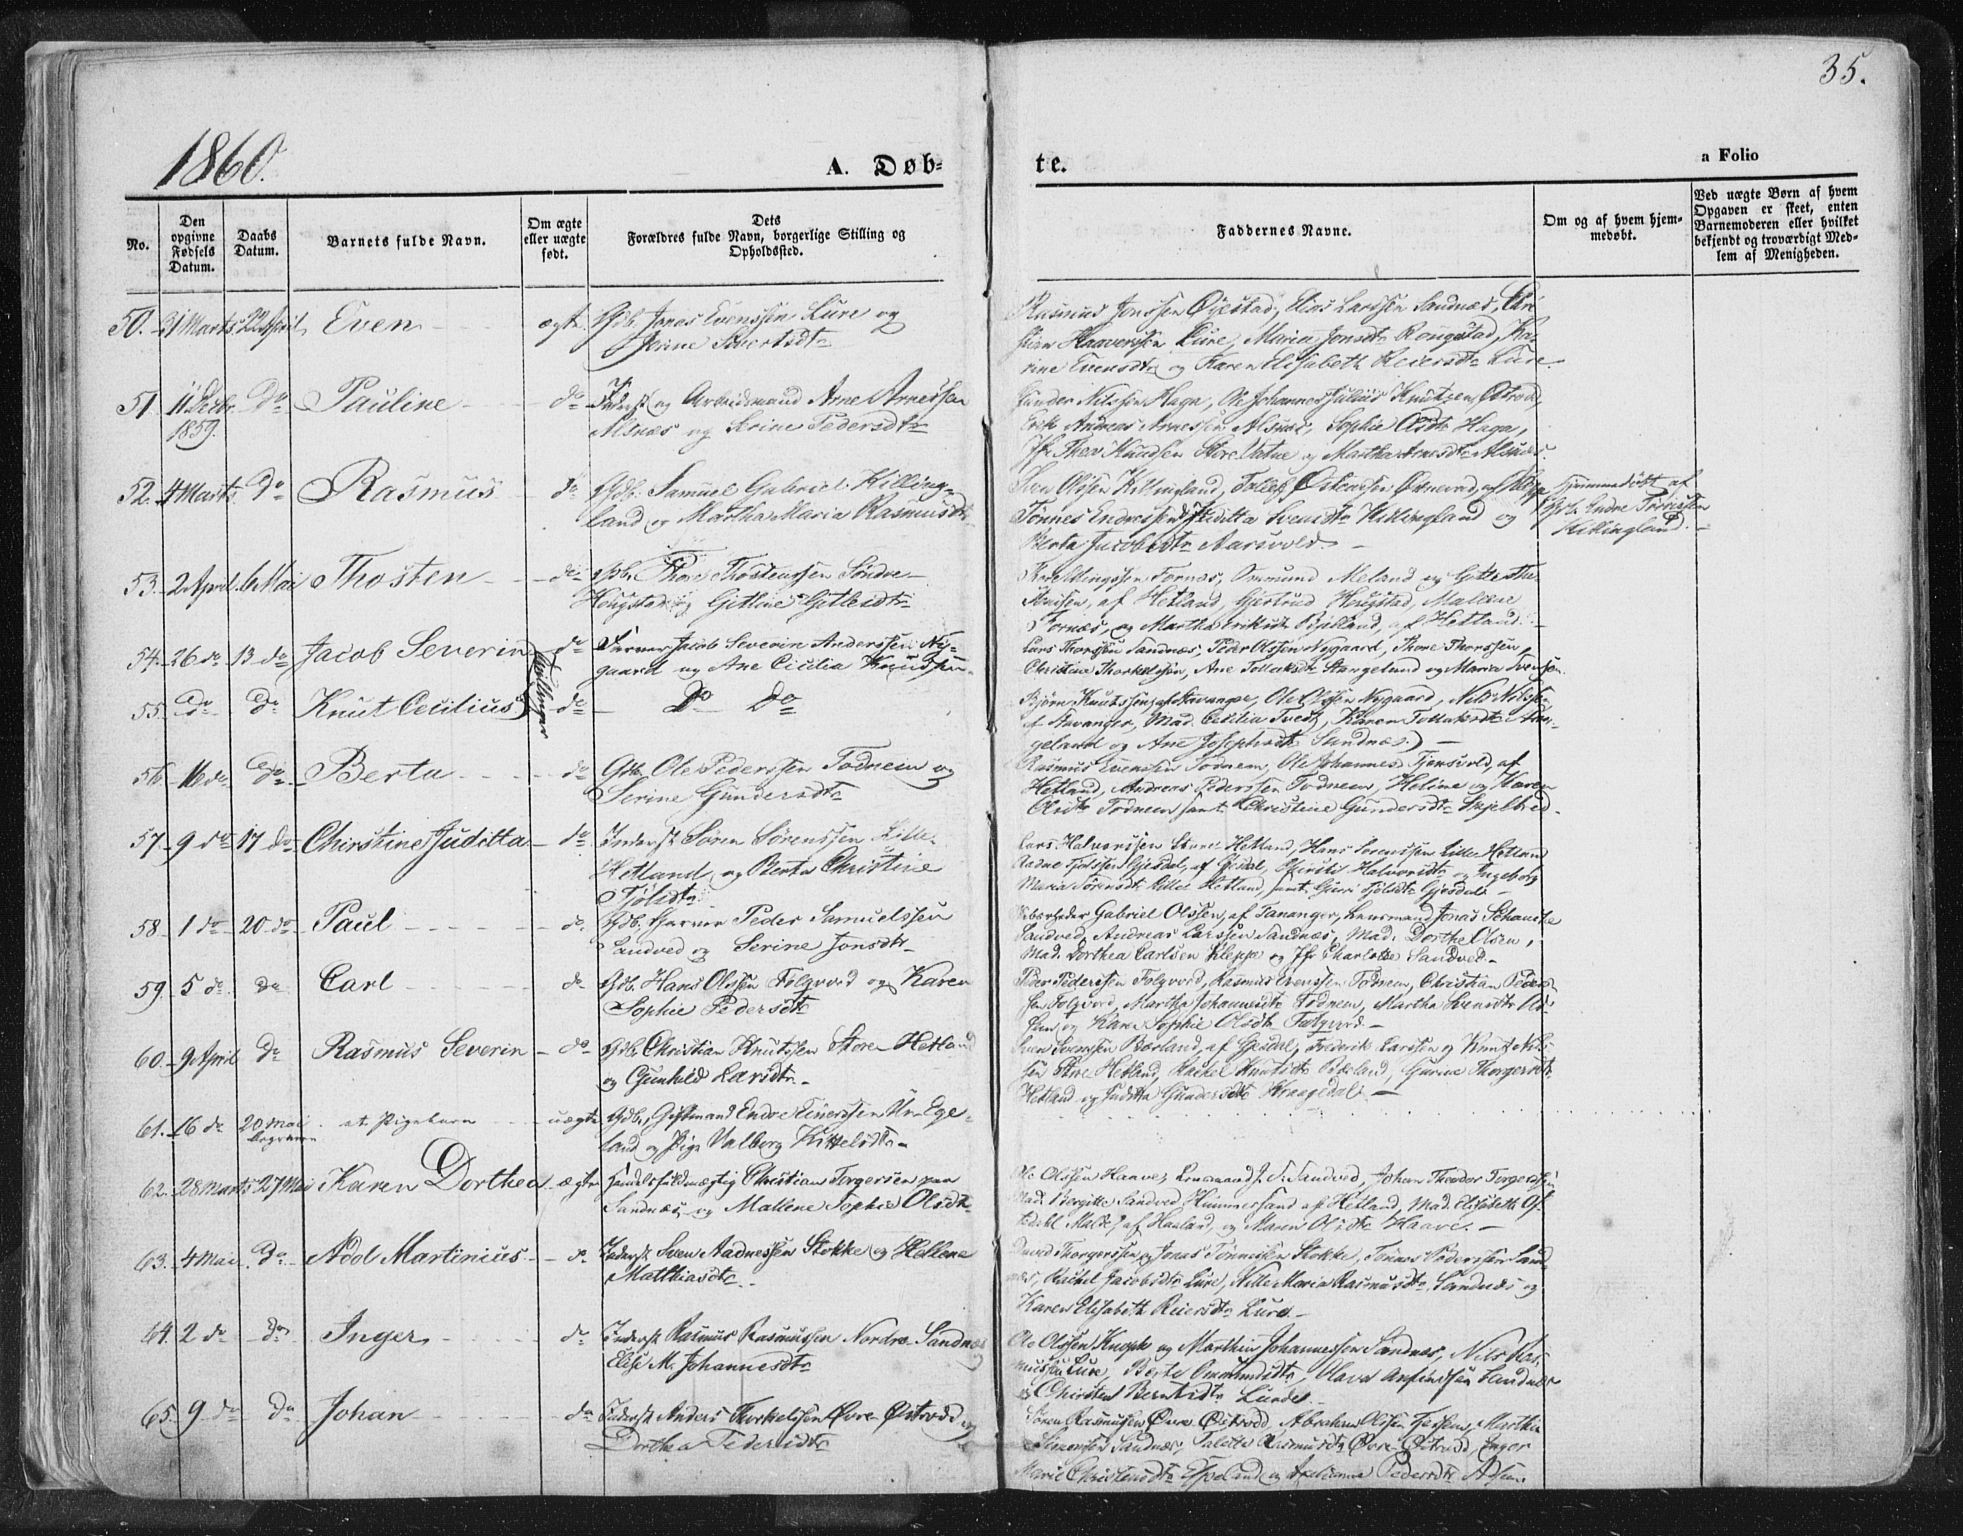 35.
1860.
A. Døb-
te.
a Folio
No.
Den opgivne Fødsels Datum.
Daabs Datum.
Barnets fulde Navn.
Om ægte eller uægte født.
Dets Forældres fulde Navn, borgerlige Stilling og Opholdssted.
Faddernes Navne.
Om og af hvem hjemmedøbt.
Ved uægte Børn af hvem Opgaven er skeet, enten Barnemoderen eller hvilket bekjendt og troværdigt Medlem af Menigheden.
50. 21 Marts 22 April Even ægte Gdb. Jonas Evenssen Lure og
Serine Sivertsdtr
Rasmus Jonssen Øjestad, Elias Larssen Sandnæs, Chri
stian Haaverssen Lure, Maria Jonsdtr Rougstad, Ka-
rine Evensdtr og Karen Elisabeth Reiersdtr Lure.
51. 11 Decbr. 1859. do Pauline do Inderst og Arbeidsmand Arne Arnessen
Alsnæs og Serine Pedersdtr
Gunder Nilssen Haga, Ole Johannes Julius Knutzen Østraad,
Erik Andreas Arnessen Alsnæs, Sophie Olsdtr Haga,
Jfr Thea Knudsen Store Vatne og Martha Arnesdtr Alsnæs.
52. 4 Marts do Rasmus do Gdb. Samuel Gabriel. Killing-
land og Martha Maria Rasmusdtr
Sven Olssen Killingland, Tollef Østensen
Tønnes Endressen, Juditta Svensdtr Killingland og
Berta Jacobsdtr Aarsvold.
Hjemmedøbt af
Gdb. Endre Tørrissen
Killingland.
53. 2 April 6 Mai Thosten do Gdb. Thore Thostenssen Søndre
Hougstad og Gitline Gitlesdtr
Fornæs, Omund Meland og
af Hetland, Gjertrud Hougstad, Malene
Fornæs, og Martha af Hetland.
54. 26 do 13 do Jacob Severin do Farver Jacob Severin Anderssen Ny-
gaard og Ane Cicilia Knudsen.
Lars Thorssen Sandnæs, Peder Olssen Nygaard, Thore Thorssen
Christine Thorkelssen, Ane Tollaksdtr Stangeland og Maria Svensen.
Tvillinger
55. do do Knut Cecilius do Do Do
Bjørn Knutssen, af Stavanger, Ole Olssen Nygaard, Nils Nilssen
af Stavanger, Mad. Cecilia Tvedt, Karen Tollaksdtr Stan-
geland og Ane Josephsdtr Sandnæs.
56. 16 do do Berta do Gdb. Ole Pederssen Todnem og
Serine Gundersdtr
Rasmus Evenssen Todnem, Ole Johannes Tjensvold, af
Hetland, Andreas Pederssen Todnem, Heline og Karen
Olsdtr Todnem samt Christine Gundersdtr Skjelbred.
57. 9 do 17 do Christine Juditta do Inderst Søren Sørenssen Lille-
Hetland og Berta Christine
Tjølsdtr
Lars Halvorssen Store Hetland, Hans Sørenssen Lille Hetland
Aadne Tjølssen Gjesdal, af Gjesdal, Halvorsdtr og Ingeborg
Maria Sørensdtr Lille Hetland, samt Guri Tjølsdtr Gjesdal.
58. 1 do 20 do Paul do. Gdb. Garver Peder Samuelssen
Sandved og Serine Jonsdtr
Gabriel Olssen, af Tananger, Lensmand Jonas Schancke
Sandved, Andreas Larssen Sandnæs, Mad. Dorthe Olsen,
Mad. Dorthea Carlsen Kleppe og Jfr Charlotte Sandved.
59. 5 do. do Carl do Gdb. Hans Olssen Folqvord og Karen
Sophie Pedersdtr
Peder Pederssen Folqvord, Rasmus Evenssen Todnem, Christian Peders-
sen Folqvord, Martha Johannesdtr Todnem, Martha Svensdtr
og Karen Sophie Olsdtr Folqvord.
60. 9 April do Rasmus Severin do Gdb. Christian Knutssen Store Hetland
og Gunhild Larsdtr.
Sven Svenssen Bærland, af Gjesdal, Frederik Larssen og Knut Nils-
sen Store Hetland, Rachel Knutsdtr Gurine Thorgersdtr
Hetland og Juditta Gundersdtr Kraagedal.
61. 16 do 20 Mai begraven et Pigebarn uægte Gdb., Giftmand Endre Einerssen Ege-
land og Pige Valborg Kittelsdtr
62. 28 Marts 27 Mai Karen Dorthea ægte Handelsfuldmægtig Christian Torgersen paa
Sandnæs og Mallene Sophie Olsdtr
Ole Olssen Haave, Lensmand J. S. Sandved, Johan Theodor Torgerssen
Mad. Bergitte Sandved Hummersand af Hetland, Mad. Elisabeth Of-
tedahl af Haaland, og Maren Olsdtr Haave.
63. 4 Mai Do Adol Martinius do Inderst Sven Aadnessen Stokke og Hellene
Matthiasdtr
David Thorgerssen og Jonas Tønnessen Stokke, Tønnes Pederssen Sand-
næs, Rachel Jacobsdtr Lure, Nille Maria Rasmusdtr Sandnæs og
Karen Elisabeth Reiersdtr Lure
64. 2 do do Inger do Inderst Rasmus Rasmussen Nordre Sandnæs
Elise M. Johannesdtr
Ole Olssen Knoph og Marthin Johannessen Sandnæs, Nils Ras-
mussen Lure, Berte Omundsdtr, Olava Anfinssen Sandnæs
og Christine Berntsdtr Lunde.
65. 9 do do Johan do Inderst Anders Thorkelssen Øvre Østraad og
Dorthea Pedersdtr
Søren Rasmussen Øvre Østraad, Abrahm Olssen Marthin
Simonssen Sandnæs, Talette Rasmusdtr Øvre Østraad, Inger
Marie Christensdtr Espeland og Pedersdtr